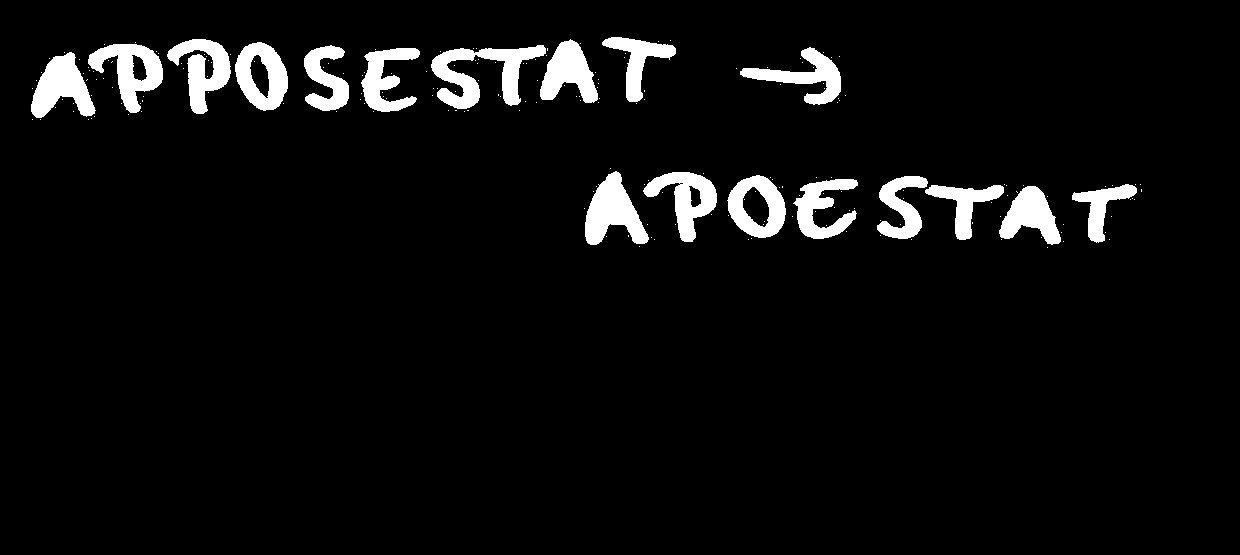 APPOSESTAT →
APOESTAT